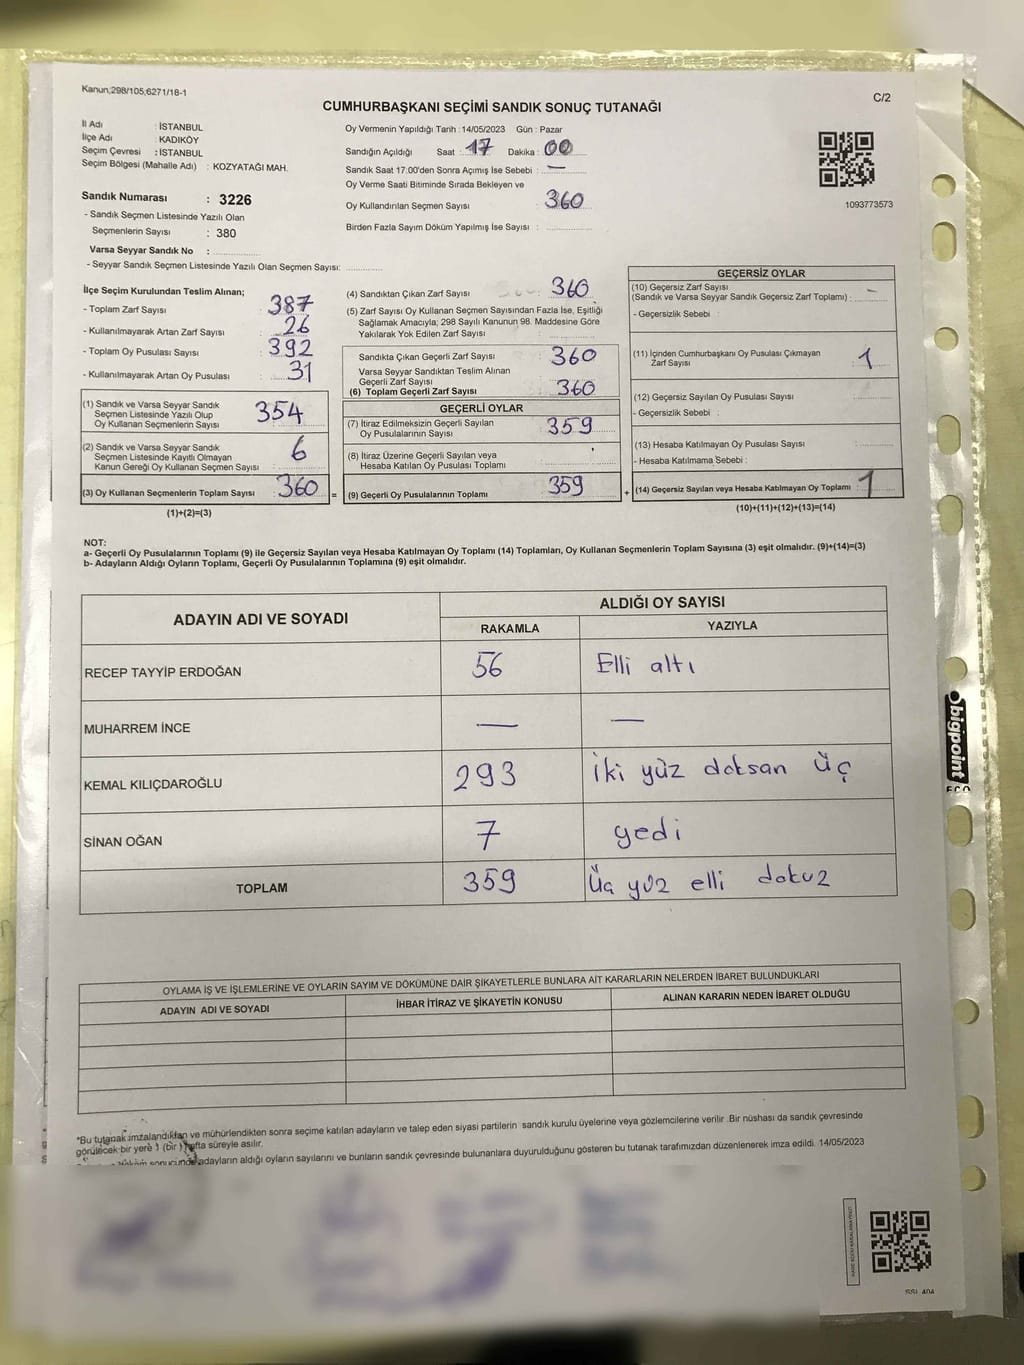 Kanun;298/105,6271/18-1
C/2
CUMHURBAŞKANI SEÇİMİ SANDIK SONUÇ TUTANAĞI
İl Adı : İSTANBUL
İlçe Adı : KADIKÖY
Seçim Çevresi : İSTANBUL
Seçim Bölgesi (Mahalle Adı) : KOZYATAĞI MAH.
Sandık Numarası : 3226
- Sandık Seçmen Listesinde Yazılı Olan
Seçmenlerin Sayısı : 380
Varsa Seyyar Sandık No :
- Seyyar Sandık Seçmen Listesinde Yazılı Olan Seçmen Sayısı:
Oy Vermenin Yapıldığı Tarih : 14/05/2023 Gün : Pazar
Sandığın Açıldığı Saat : 17 Dakika : 00
Sandık Saat 17:00'den Sonra Açımış İse Sebebi : —
Oy Verme Saati Bitiminde Sırada Bekleyen ve
Oy Kullandırılan Seçmen Sayısı : 360
Birden Fazla Sayım Döküm Yapılmış İse Sayısı :
1093773573
İlçe Seçim Kurulundan Teslim Alınan;
- Toplam Zarf Sayısı : 387
- Kullanılmayarak Artan Zarf Sayısı : 26
- Toplam Oy Pusulası Sayısı : 392
- Kullanılmayarak Artan Oy Pusulası : 31
(1) Sandık ve Varsa Seyyar Sandık
Seçmen Listesinde Yazılı Olup
Oy Kullanan Seçmenlerin Sayısı : 354
(2) Sandık ve Varsa Seyyar Sandık
Seçmen Listesinde Kayıtlı Olmayan
Kanun Gereği Oy Kullanan Seçmen Sayısı : 6
(3) Oy Kullanan Seçmenlerin Toplam Sayısı : 360
(1)+(2)=(3)
(4) Sandıktan Çıkan Zarf Sayısı : 360
(5) Zarf Sayısı Oy Kullanan Seçmen Sayısından Fazla İse, Eşitliği
Sağlamak Amacıyla; 298 Sayılı Kanunun 98. Maddesine Göre
Yakılarak Yok Edilen Zarf Sayısı :
Sandıkta Çıkan Geçerli Zarf Sayısı : 360
Varsa Seyyar Sandıktan Teslim Alınan
Geçerli Zarf Sayısı :
(6) Toplam Geçerli Zarf Sayısı : 360
GEÇERLİ OYLAR
(7) İtiraz Edilmeksizin Geçerli Sayılan
Oy Pusulalarının Sayısı : 359
(8) İtiraz Üzerine Geçerli Sayılan veya
Hesaba Katılan Oy Pusulası Toplamı
= (9) Geçerli Oy Pusulalarının Toplamı 359
GEÇERSİZ OYLAR
(10) Geçersiz Zarf Sayısı
(Sandık ve Varsa Seyyar Sandık Geçersiz Zarf Toplamı) : —
- Geçersizlik Sebebi :
(11) İçinden Cumhurbaşkanı Oy Pusulası Çıkmayan
Zarf Sayısı : 1
(12) Geçersiz Sayılan Oy Pusulası Sayısı
- Geçersizlik Sebebi :
(13) Hesaba Katılmayan Oy Pusulası Sayısı
- Hesaba Katılmama Sebebi :
+ (14) Geçersiz Sayılan veya Hesaba Katılmayan Oy Toplamı : 1
(10)+(11)+(12)+(13)=(14)
NOT:
a- Geçerli Oy Pusulalarının Toplamı (9) ile Geçersiz Sayılan veya Hesaba Katılmayan Oy Toplamı (14) Toplamları, Oy Kullanan Seçmenlerin Toplam Sayısına (3) eşit olmalıdır. (9)+(14)=(3)
b- Adayların Aldığı Oyların Toplamı, Geçerli Oy Pusulalarının Toplamına (9) eşit olmalıdır.
ADAYIN ADI VE SOYADI
ALDIĞI OY SAYISI
RAKAMLA YAZIYLA
RECEP TAYYİP ERDOĞAN 56 Elli altı
MUHARREM İNCE — —
KEMAL KILIÇDAROĞLU 293 iki yüz doksan üç
SİNAN OĞAN 7 yedi
TOPLAM 359 Üç yüz elli dokuz
OYLAMA İŞ VE İŞLEMLERİNE VE OYLARIN SAYIM VE DÖKÜMÜNE DAİR ŞİKAYETLERLE BUNLARA AİT KARARLARIN NELERDEN İBARET BULUNDUKLARI
ADAYIN ADI VE SOYADI İHBAR İTİRAZ VE ŞİKAYETİN KONUSU ALINAN KARARIN NEDEN İBARET OLDUĞU
*Bu tutanak imzalandıktan ve mühürlendikten sonra seçime katılan adayların ve talep eden siyasi partilerin sandık kurulu üyelerine veya gözlemcilerine verilir .Bir nüshası da sandık çevresinde
görülecek bir yere 1 (bir ) hafta süreyle asılır.
sonucunda adayların aldığı oyların sayılarını ve bunların sandık çevresinde bulunanlara duyurulduğunu gösteren bu tutanak tarafımızdan düzenlenerek imza edildi. 14/05/2023
bigpoint